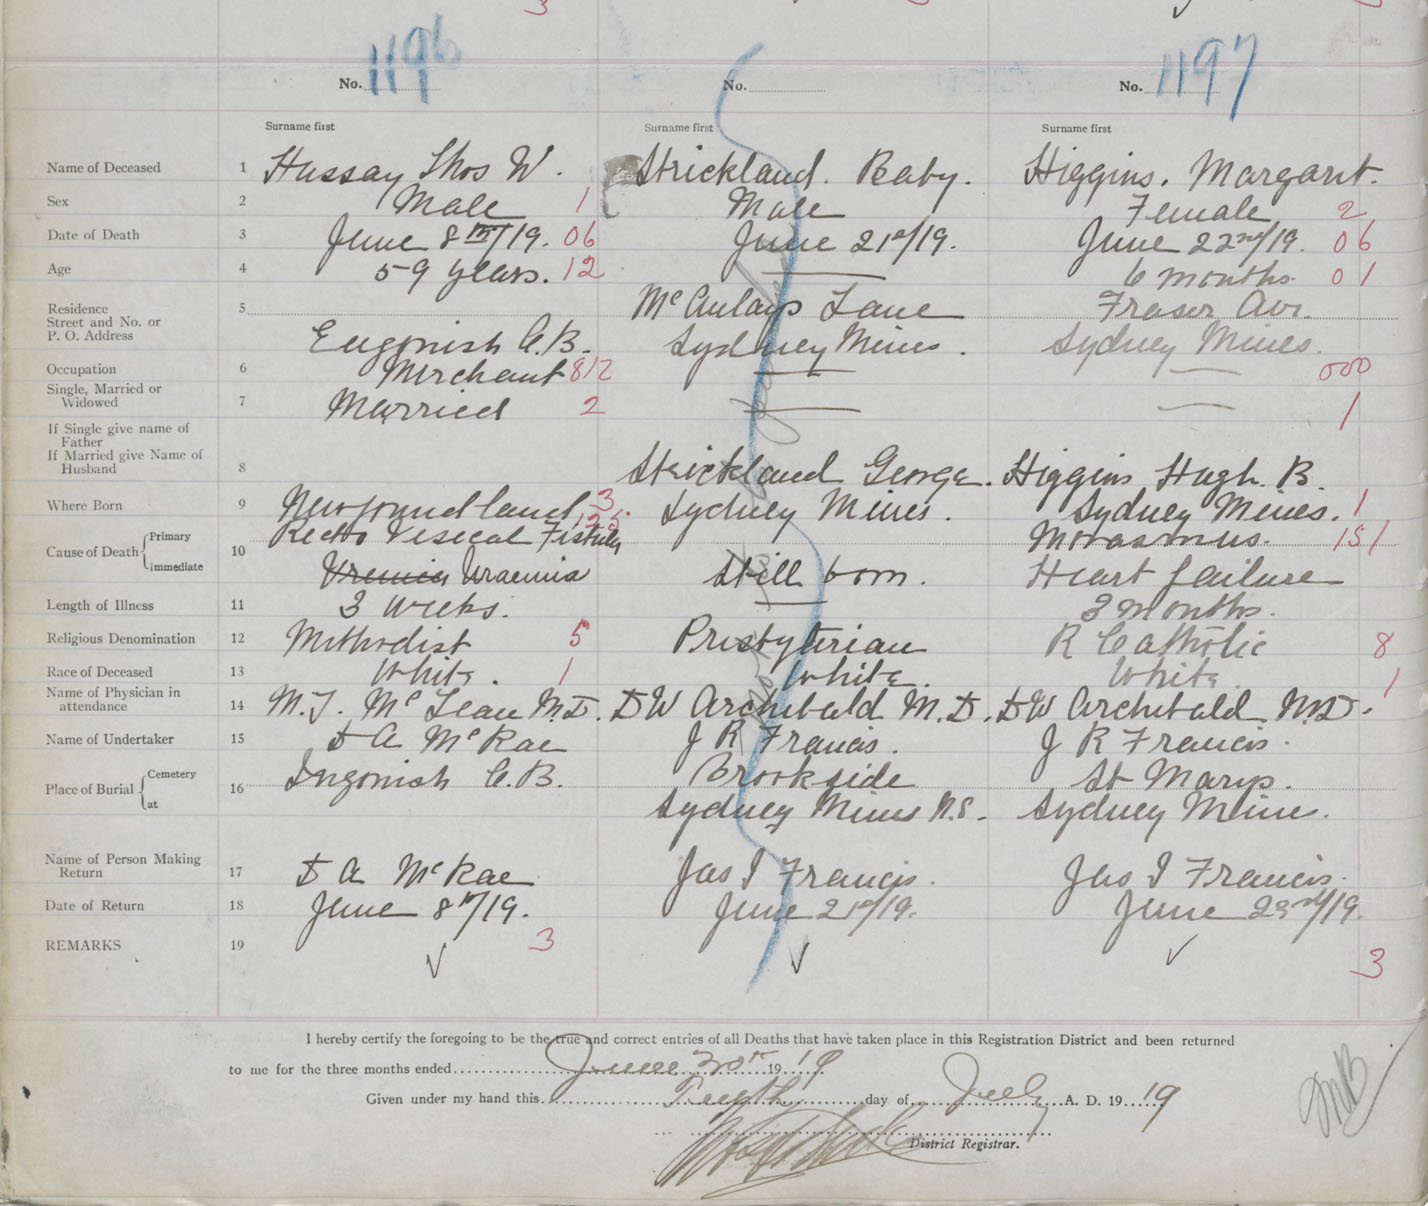 3
3
1196
1197
No.
No.
No.
Surname first
Surname first
Surname first
Name of Deceased 1 Hussay Thos W. Strickland. Baby. Higgins. Margaret.
Sex 2 Male 1 Male Female 2
Date of Death 3 June 8th/19. 06 June 21st/19. June 22nd/19. 06
Age 4 59 years. 12 — 6 months 01
Residence
Street and No. or
P. O. Address
5 McAulays Lane Fraser Ave.
Eugonish C.B. Sydney Mines. Sydney Mines.
Occupation 6 Merchant 812 — — 000
Single, Married or
Widowed
7 Married 2 — — 1
If Single give name of
Father
If Married give Name of
Husband
8 Strickland George. Higgins Hugh. B.
Where Born 9 Newfoundland 3. Sydney Mines. Sydney Mines. 1
Cause of Death Primary Recto Vesical Fistula Marasmus. 151
immediate 10 Uremia Uraemia Still born. Heart failure
Length of Illness 11 3 weeks. — 3 months.
Religious Denomination 12 Methodist 5 Presbyterian R Catholic 8
Race of Deceased 13 White. 1 White. White. 1
Name of Physician in
attendance
14 M.J. McLean M.D. DW Archibald M.D. DW Archibald M.D.
Name of Undertaker 15 D A McRae J R Francis. J R Francis.
Place of Burial Cemetery 16 Ingonish C.B. Brookside St Marys.
at Sydney Mines N.S. Sydney Mines.
Name of Person Making
Return
17 D A McRae Jas I Francis. Jas I Francis.
Date of Return 18 June 8th/19. June 21st/19. June 23rd/19.
REMARKS 19 3 3
I hereby certify the foregoing to be the true and correct entries of all Deaths that have taken place in this Registration District and been returned
to me for the three months ended June 30th 1919
Given under my hand this day of July A. D. 1919
District Registrar.